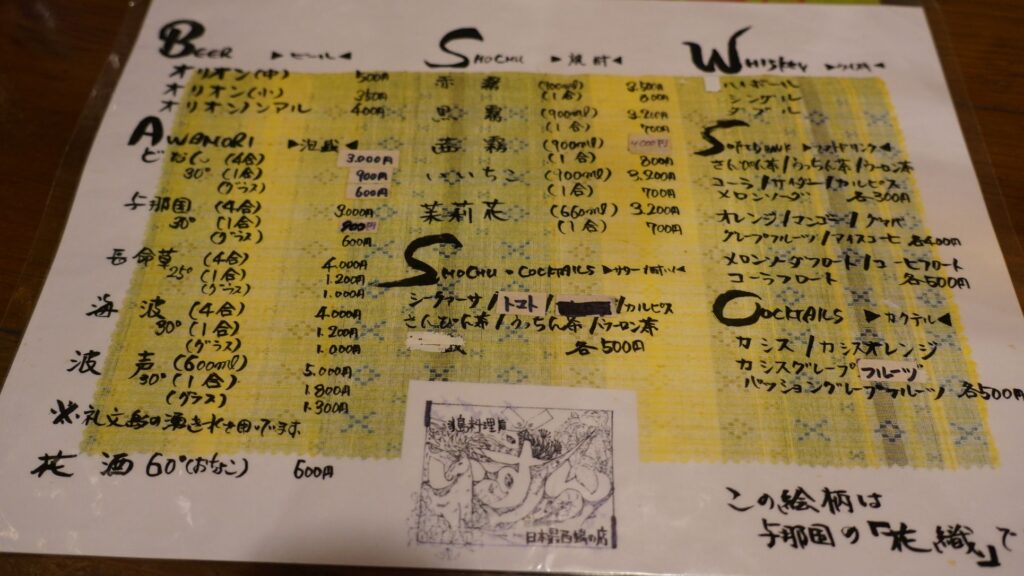 BEER ▶ビール◀
オリオン(中) 500円
オリオン(小) 350円
オリオンノンアル 400円
AWAMORI ▶泡盛◀
どなん (4合) 3.000円
30° (1合) 900円
(グラス) 600円
与那国 (4合) 3.000円
30° (1合) 900円
(グラス) 600円
長命草 (4合) 4.000円
25° (1合) 1.200円
(グラス) 1.000円
海波 (4合) 4.000円
30° (1合) 1.200円
(グラス) 1.000円
波声 (600ml) 5.000円
30° (1合) 1.800円
(グラス) 1.300円
※礼文島の湧き水を用いています
花酒 60°(おなこ) 600円
SHOCHU ▶焼酎◀
赤霧 (900ml) 3.500円
(1合) 800円
黒霧 (900ml) 3.200円
(1合) 700円
茜霧 (900ml) 4000円
(1合) 800円
いいちこ (900ml) 3.200円
(1合) 700円
茉莉花 (660ml) 3.200円
(1合) 700円
SHOCHU・COCKTAILS ▶サワー/酎ハイ◀
シークァーサ/トマト/ /カルピス
さんぴん茶/うっちん茶/ウーロン茶
各500円
WHISKEY ▶ウイスキー◀
ハイボール
シングル
ダブル
SOFT DRINK ▶ソフトドリンク◀
さんぴん茶/うっちん茶/ウーロン茶
コーラ/サイダー/カルピス
メロンソーダ 各300円
オレンジ/マンゴー/グァバ
グレープフルーツ/アイスコーヒー 各400円
メロンソーダフロート/コーヒーフロート
コーラフロート 各500円
COCKTAILS ▶カクテル◀
カシス/カシスオレンジ
カシスグレープフルーツ
パッショングレープフルーツ 各500円
日本最西端の店
この絵柄は
与那国の「花織」で